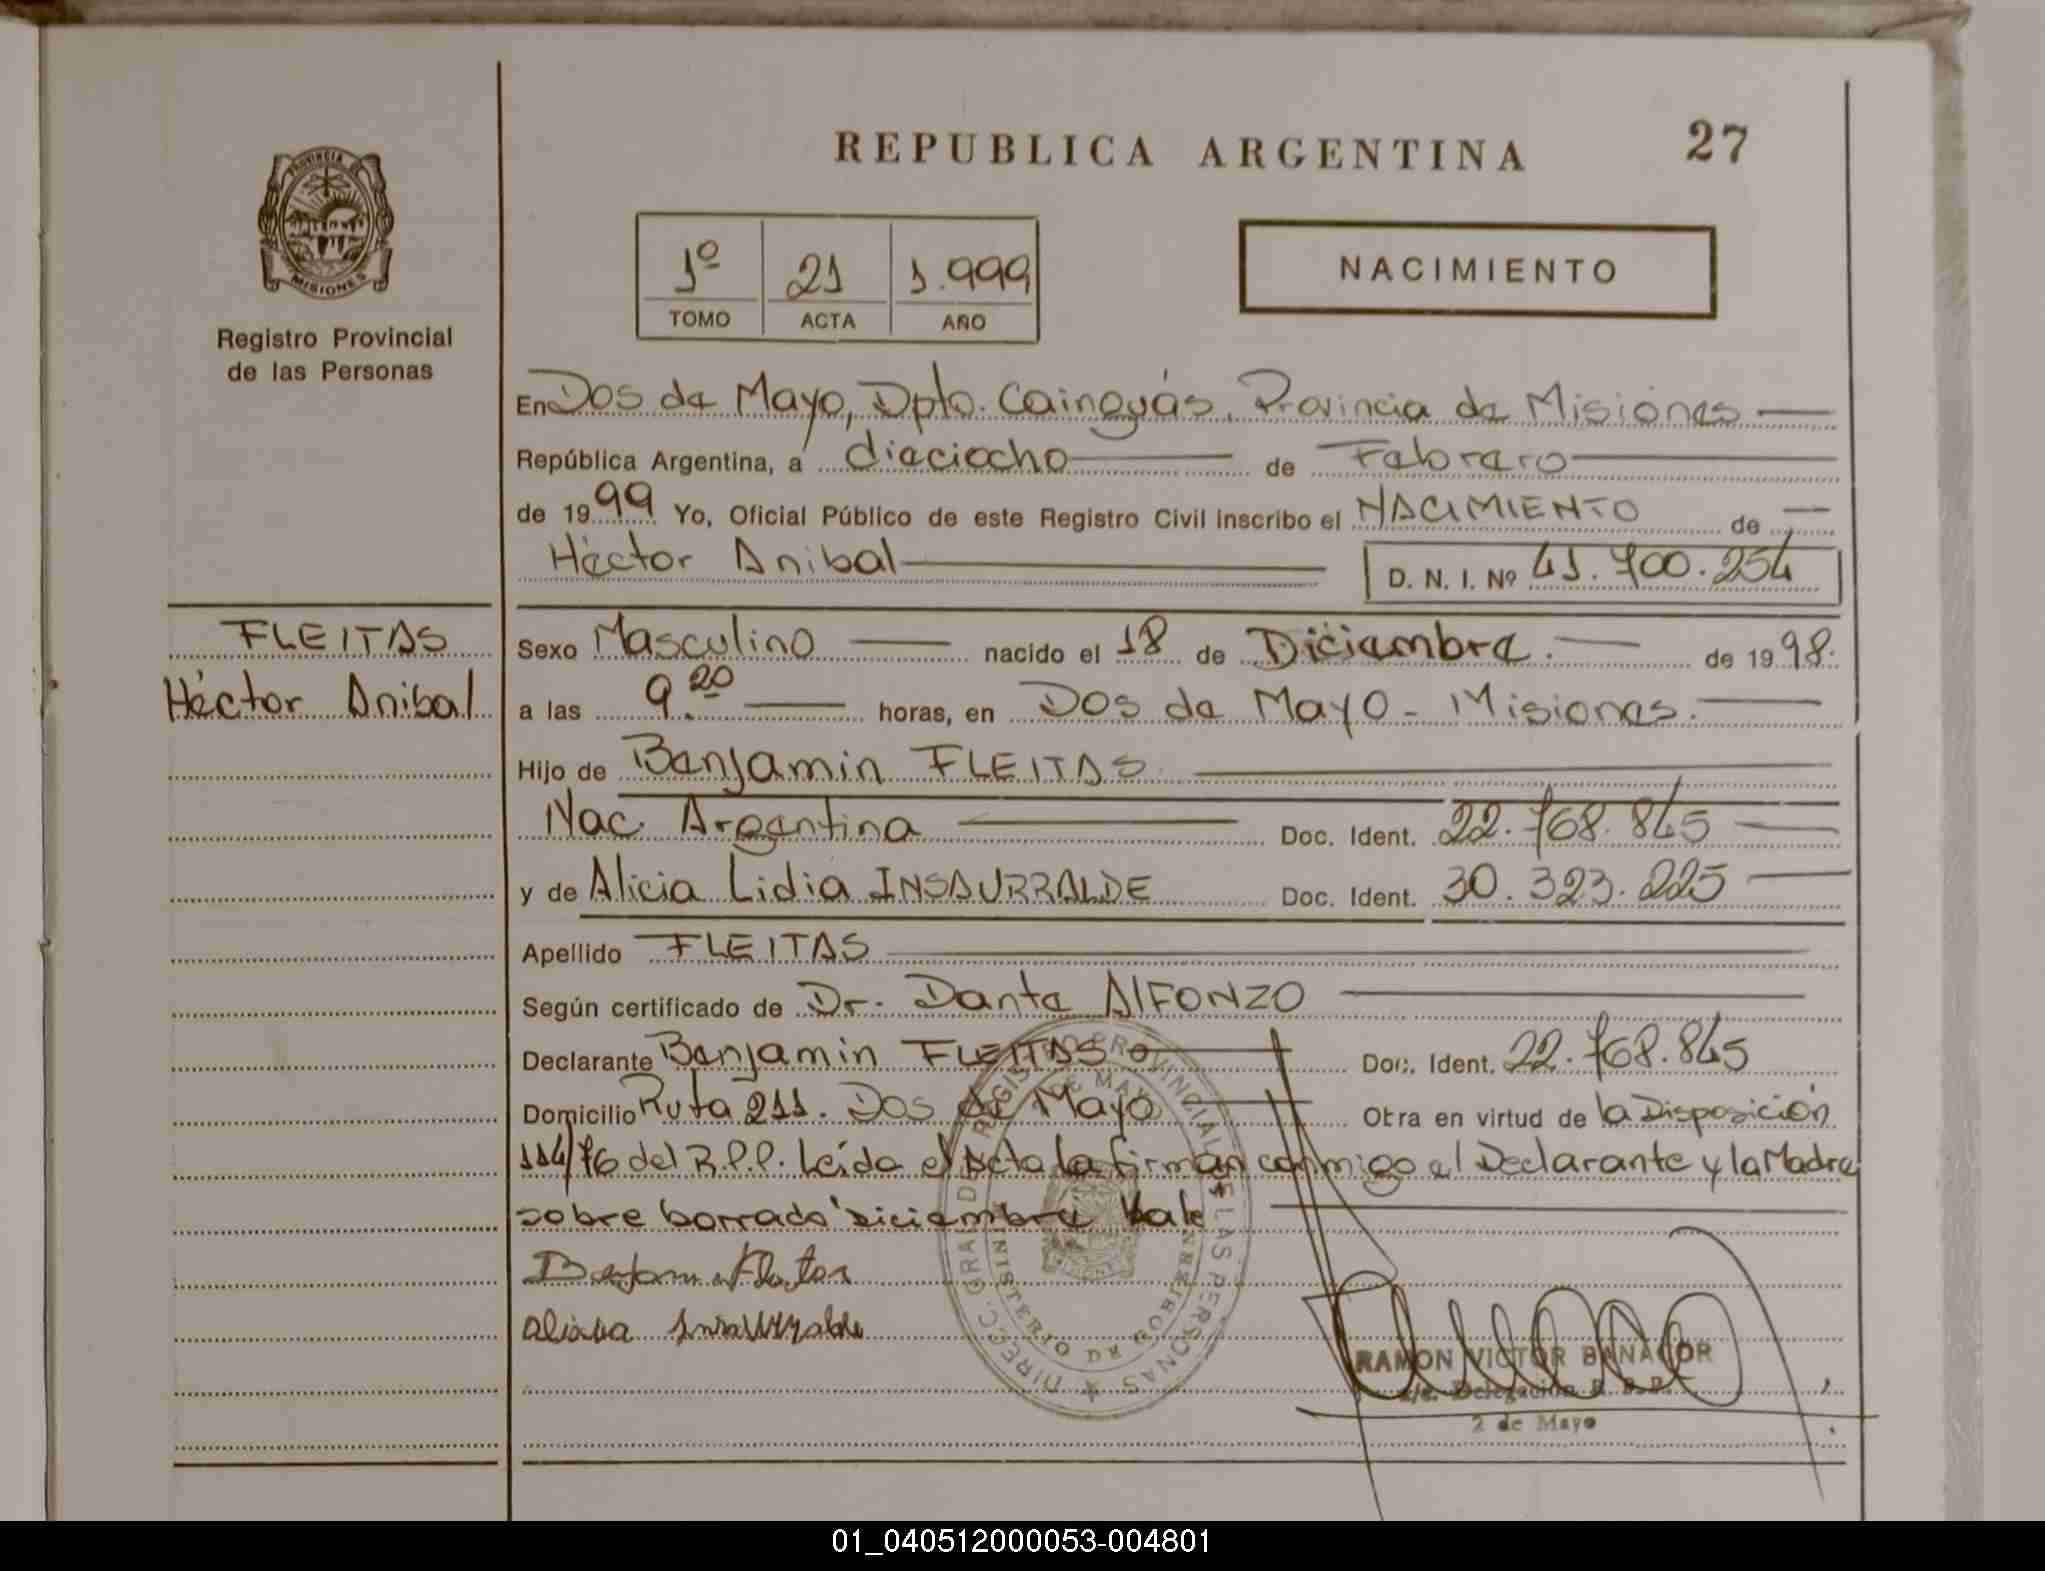 REPUBLICA ARGENTINA
27
PROVINCIA DE
MISIONES
Registro Provincial
de las Personas
1º 21 1.999
TOMO ACTA AÑO
NACIMIENTO
En Dos de Mayo, Dpto. Cainguás, Provincia de Misiones
República Argentina, a dieciocho de Febrero
de 1999 Yo, Oficial Público de este Registro Civil inscribo el NACIMIENTO de
Héctor Anibal D. N. I. Nº 41.700.254
FLEITAS
Héctor Anibal
Sexo Masculino nacido el 18 de Diciembre. de 1998.
a las 9.20 horas, en Dos de Mayo - Misiones.
Hijo de Benjamin FLEITAS
Nac. Argentina Doc. Ident. 22.768.845
y de Alicia Lidia INSAURRALDE Doc. Ident. 30.323.225
Apellido FLEITAS
Según certificado de Dr. Dante AlFONZO
Declarante Benjamin FLEITAS Doc. Ident. 22.768.845
Domicilio Ruta 211. Dos de Mayo Otra en virtud de la Disposición
114/76 del R.P.P. Leída el Acta la firman conmigo el Declarante y la Madre
sobre borrado "Diciembre Vale
DIRECC. GRAL. DE REGISTRO PROVINCIAL DE LAS PERSONAS
DOS DE MAYO
MINISTERIO DE GOBIERNO
RAMON VICTOR BANACOR
a/c. Delegación R. P. P.
2 de Mayo
01_040512000053-004801